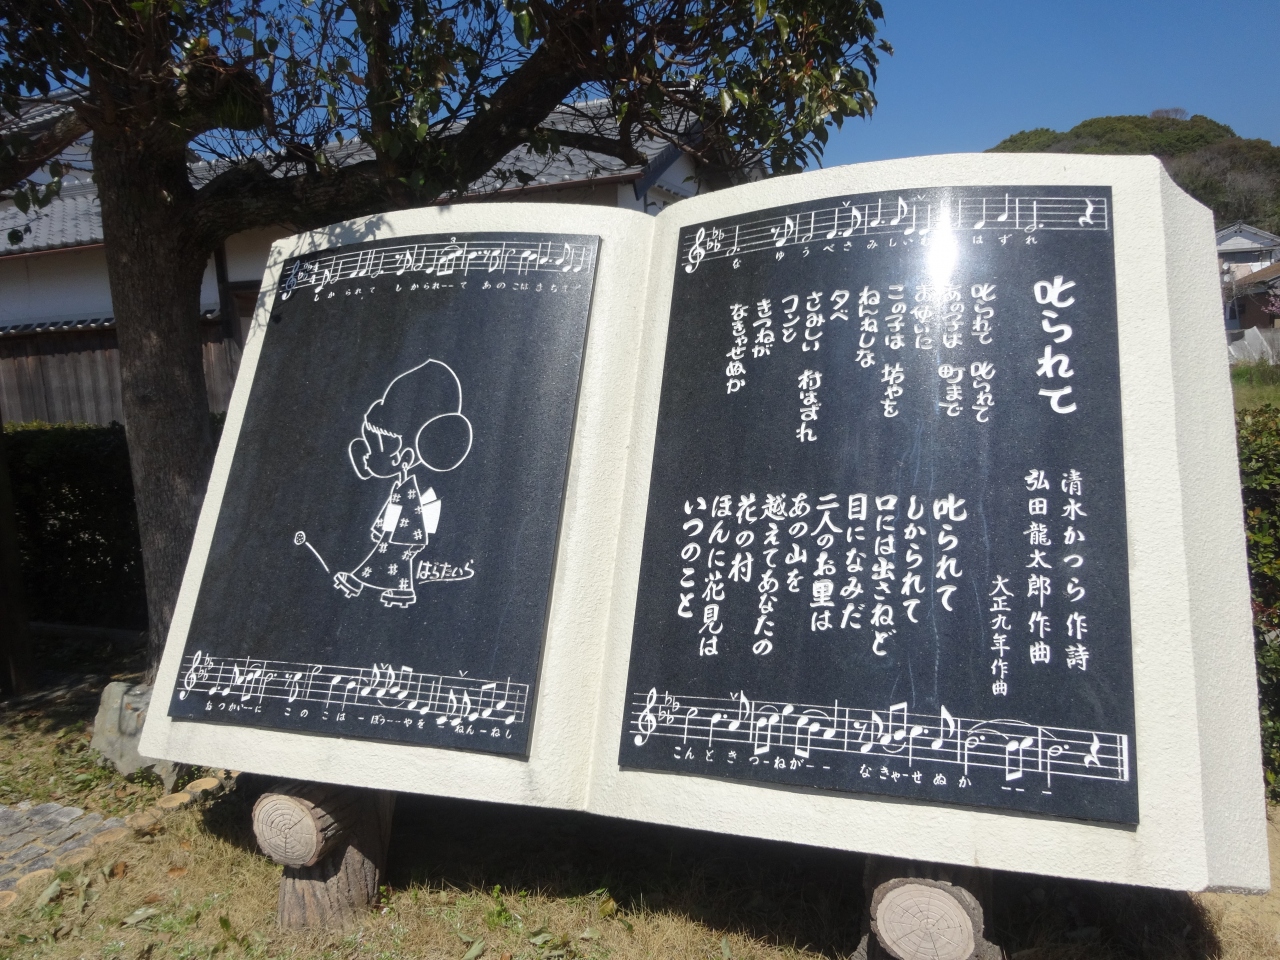 しかられて しかられーーて あのこはまちまで
はらたいら
おつかいーに このこはーぼうーーやをーねんーねし
なゆうべさみしいむらはずれ
叱られて
清水かつら作詩
弘田龍太郎作曲
大正九年作曲
叱られて 叱られて
あの子は 町まで
お使いに
この子は 坊やを
ねんねしな
夕べ
さみしい 村はずれ
コンと
きつねが
なきゃせぬか
叱られて
しかられて
口には出さねど
目になみだ
二人のお里は
あの山を
越えてあなたの
花の村
ほんに花見は
いつのこと
こんときつーねがーー なきゃーせぬかーーー